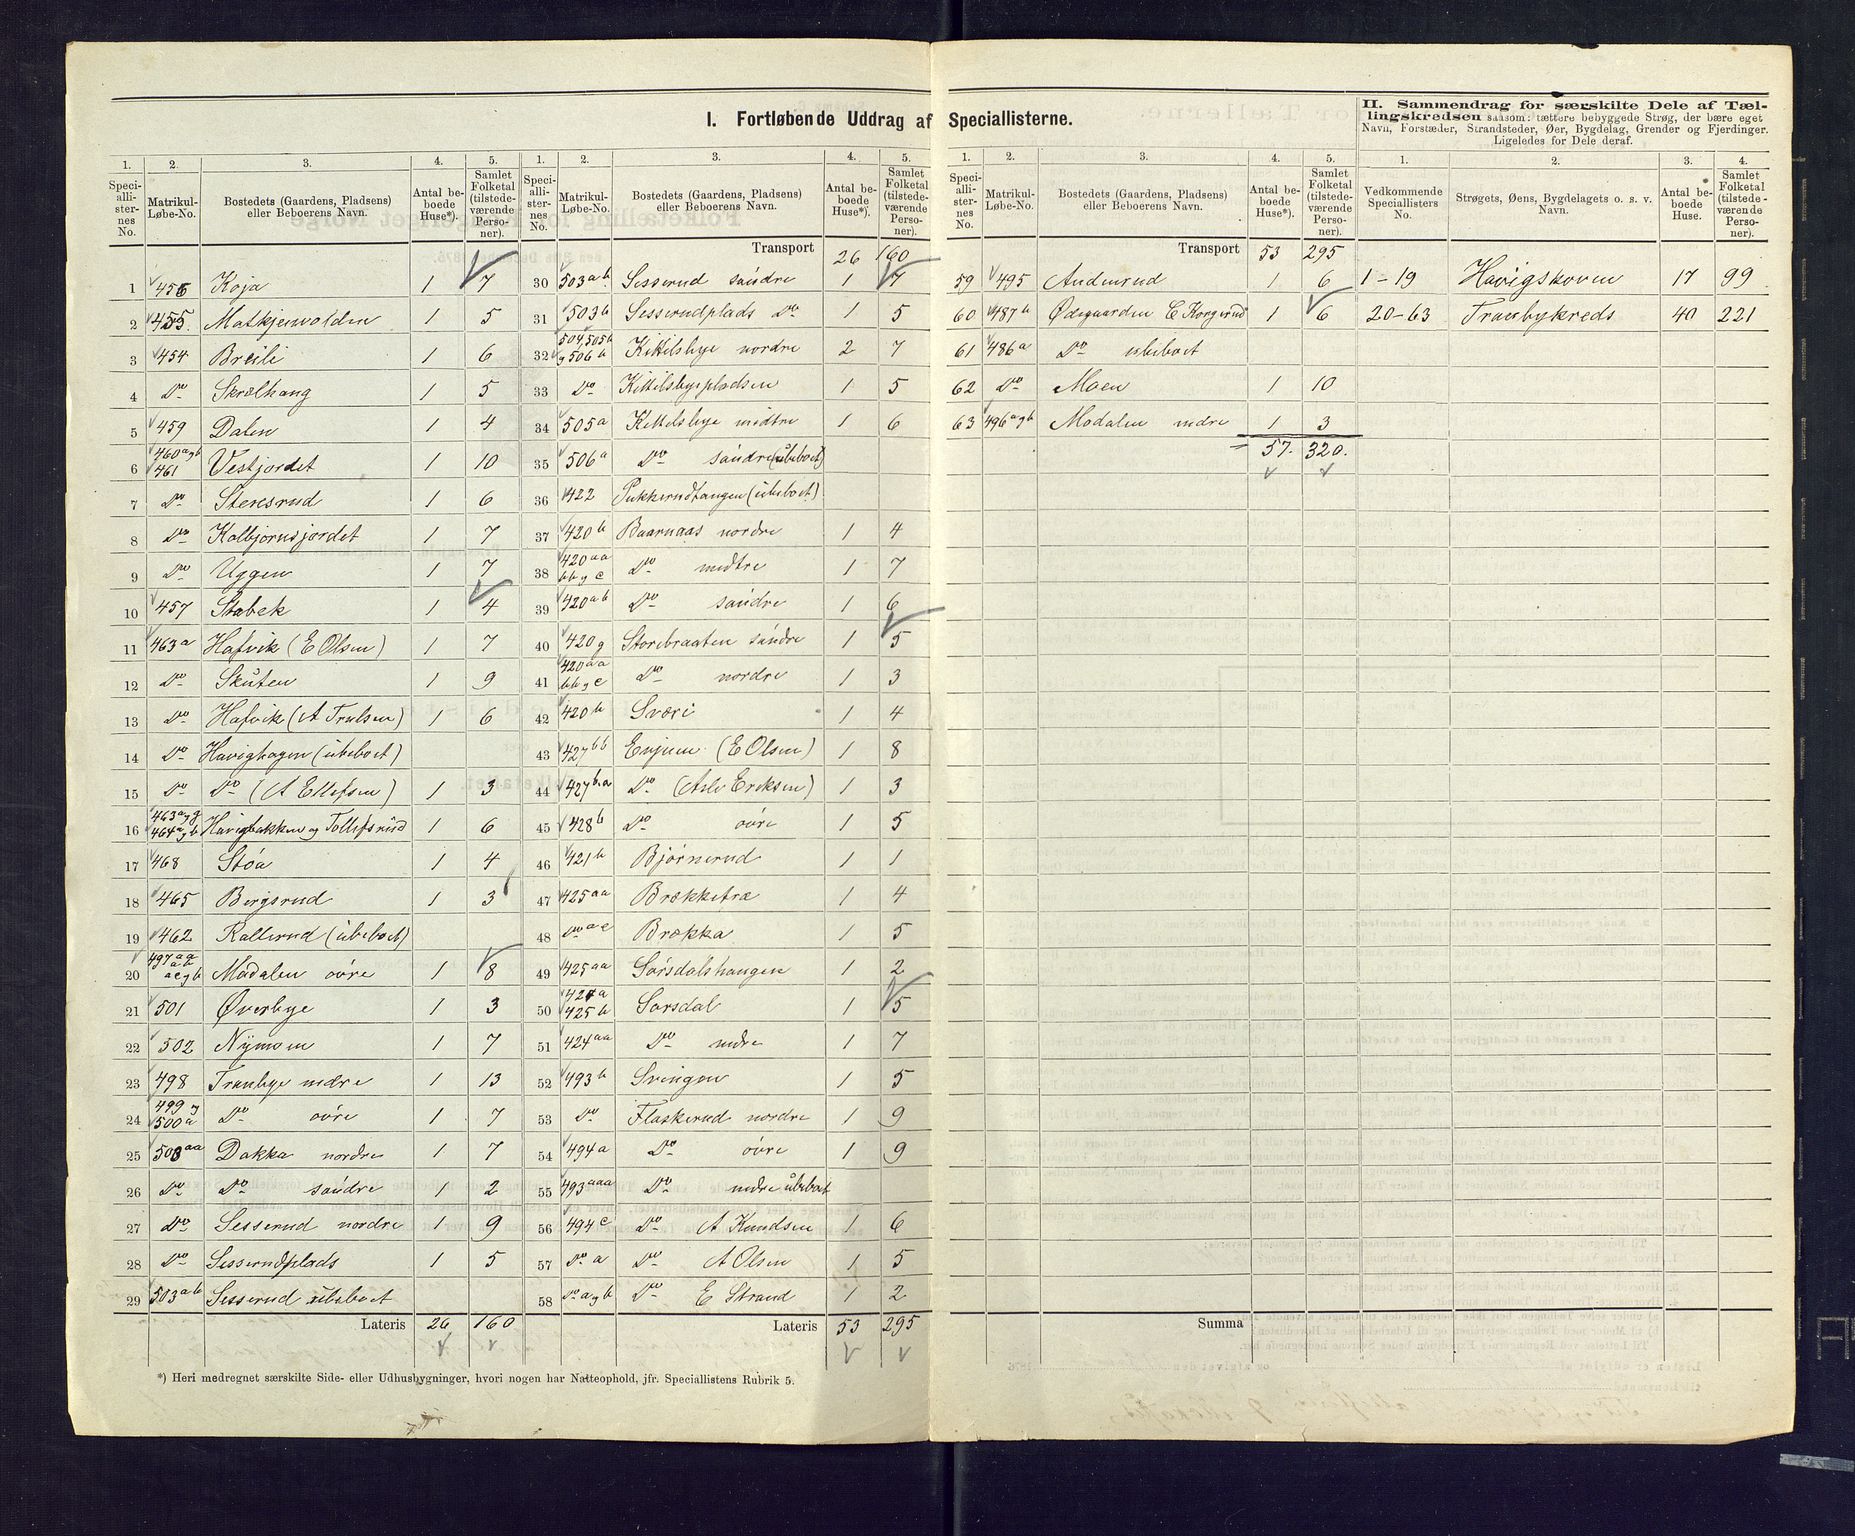 I. Fortløbende Uddrag af Speciallisterne.
II. Sammendrag for særskilte Dele af Tæl-
lingskredsen saasom: tættere bebyggede Strøg, der bære eget
Navn, Forstæder, Strandsteder, Øer, Bygdelag, Grender og Fjerdinger.
Ligeledes for Dele deraf.
1. 2. 3. 4. 5.
Speciallisternes No. Matrikul-Løbe-No. Bostedets (Gaardens, Pladsens) eller Beboerens Navn. Antal beboede Huse*). Samlet Folketal (tilstedeværende Personer).
1 456 Koja 1 7
2 455 Matkjenvolden 1 5
3 454 Breili 1 6
4 Do Skrælhang 1 5
5 459 Dalen 1 4
6 460 a g b 461 Vestjordet 1 10
7 Do Steresrud 1 6
8 Do Kolbjørnsjordet 1 7
9 Do Uggen 1 7
10 457 Stabek 1 4
11 463 a Hafvik (E Olsen) 1 7
12 Do Skuten 1 9
13 Do Hafvik (A Trulsen) 1 6
14 Do Havighagen (ubeboet)
15 Do Do (A Ellefsen) 1 3
16 463 a g g 464 a g b Havigbakken og Tollefsrud 1 6
17 468 Støa 1 4
18 465 Bergsrud 1 3
19 462 Rallerud (ubeboet)
20 497 aa ab ac g b Modalen øvre 1 8
21 501 Øverbye 1 3
22 502 Nymoen 1 7
23 498 Tranbye nedre 1 13
24 499 g 500 a Do øvre 1 7
25 503 aa Dakka nordre 1 7
26 Do Do søndre 1 2
27 Do Sesserud nordre 1 9
28 Do Sesserudplads 1 5
29 503 a b Sesserud ubeboet
Lateris 26 160
1. 2. 3. 4. 5.
Speciallisternes No. Matrikul-Løbe-No. Bostedets (Gaardens, Pladsens) eller Beboerens Navn. Antal beboede Huse*). Samlet Folketal (tilstedeværende Personer).
Transport 26 160
30 503 a b Sesserud søndre 1 7
31 503 b Sesserudplads Do 1 5
32 504, 505 b g 506 b Kittilsbye nordre 2 7
33 Do Kittilsbyepladsen 1 5
34 505 a Kittilsbye midtre 1 6
35 506 a Do søndre (ubeboet)
36 422 Pukkerudtangen (ubeboet)
37 420 b Baarnaas nordre 1 4
38 420 aa bb g c Do midtre 1 7
39 420 a b Do søndre 1 6
40 420 g Storebraaten søndre 1 5
41 420 aa bb g c Do nordre 1 3
42 420 b Sværi 1 4
43 427 bb Enjum (E Olsen) 1 8
44 427 b a Do (Asle Eriksen) 1 3
45 428 b Do øvre 1 5
46 421 b Bjørnerud 1 1
47 425 aa Brækketræ 1 4
48 Do a c Brækka 1 5
49 425 aa Sørsdalshaugen 1 2
50 424 a 425 b Sørsdal 1 5
51 424 aa Do nedre 1 7
52 493 b Svingen 1 5
53 Do Flaskerud nordre 1 9
54 494 a Do øvre 1 9
55 493 aaa Do nedre ubeboet
56 494 c Do A Knudsen 1 6
57 Do a Do A Olsen 1 5
58 Do a g b Do E Strand 1 2
Lateris 53 295
*) Heri medregnet særskilte Side- eller Udhusbygninger, hvori nogen har Natteophold, jfr. Speciallistens Rubrik 5.
1. 2. 3. 4. 5.
Speciallisternes No. Matrikul-Løbe-No. Bostedets (Gaardens, Pladsens) eller Beboerens Navn. Antal beboede Huse*). Samlet Folketal (tilstedeværende Personer).
Transport 53 295
59 495 Andenrud 1 6
60 487 b Ødegaarden E Korgerud 1 6
61 486 a Do ubeboet
62 Do Moen 1 10
63 496 a g b Modalen nedre 1 3
57. 320.
Summa
1. 2. 3. 4.
Vedkommende Speciallisters No. Strøgets, Øens, Bygdelagets o. s. v. Navn. Antal beboede Huse. Samlet Folketal (tilstedeværende Personer).
1-19 Havigskoven 17 99
20-63 Tranbykreds 40 221